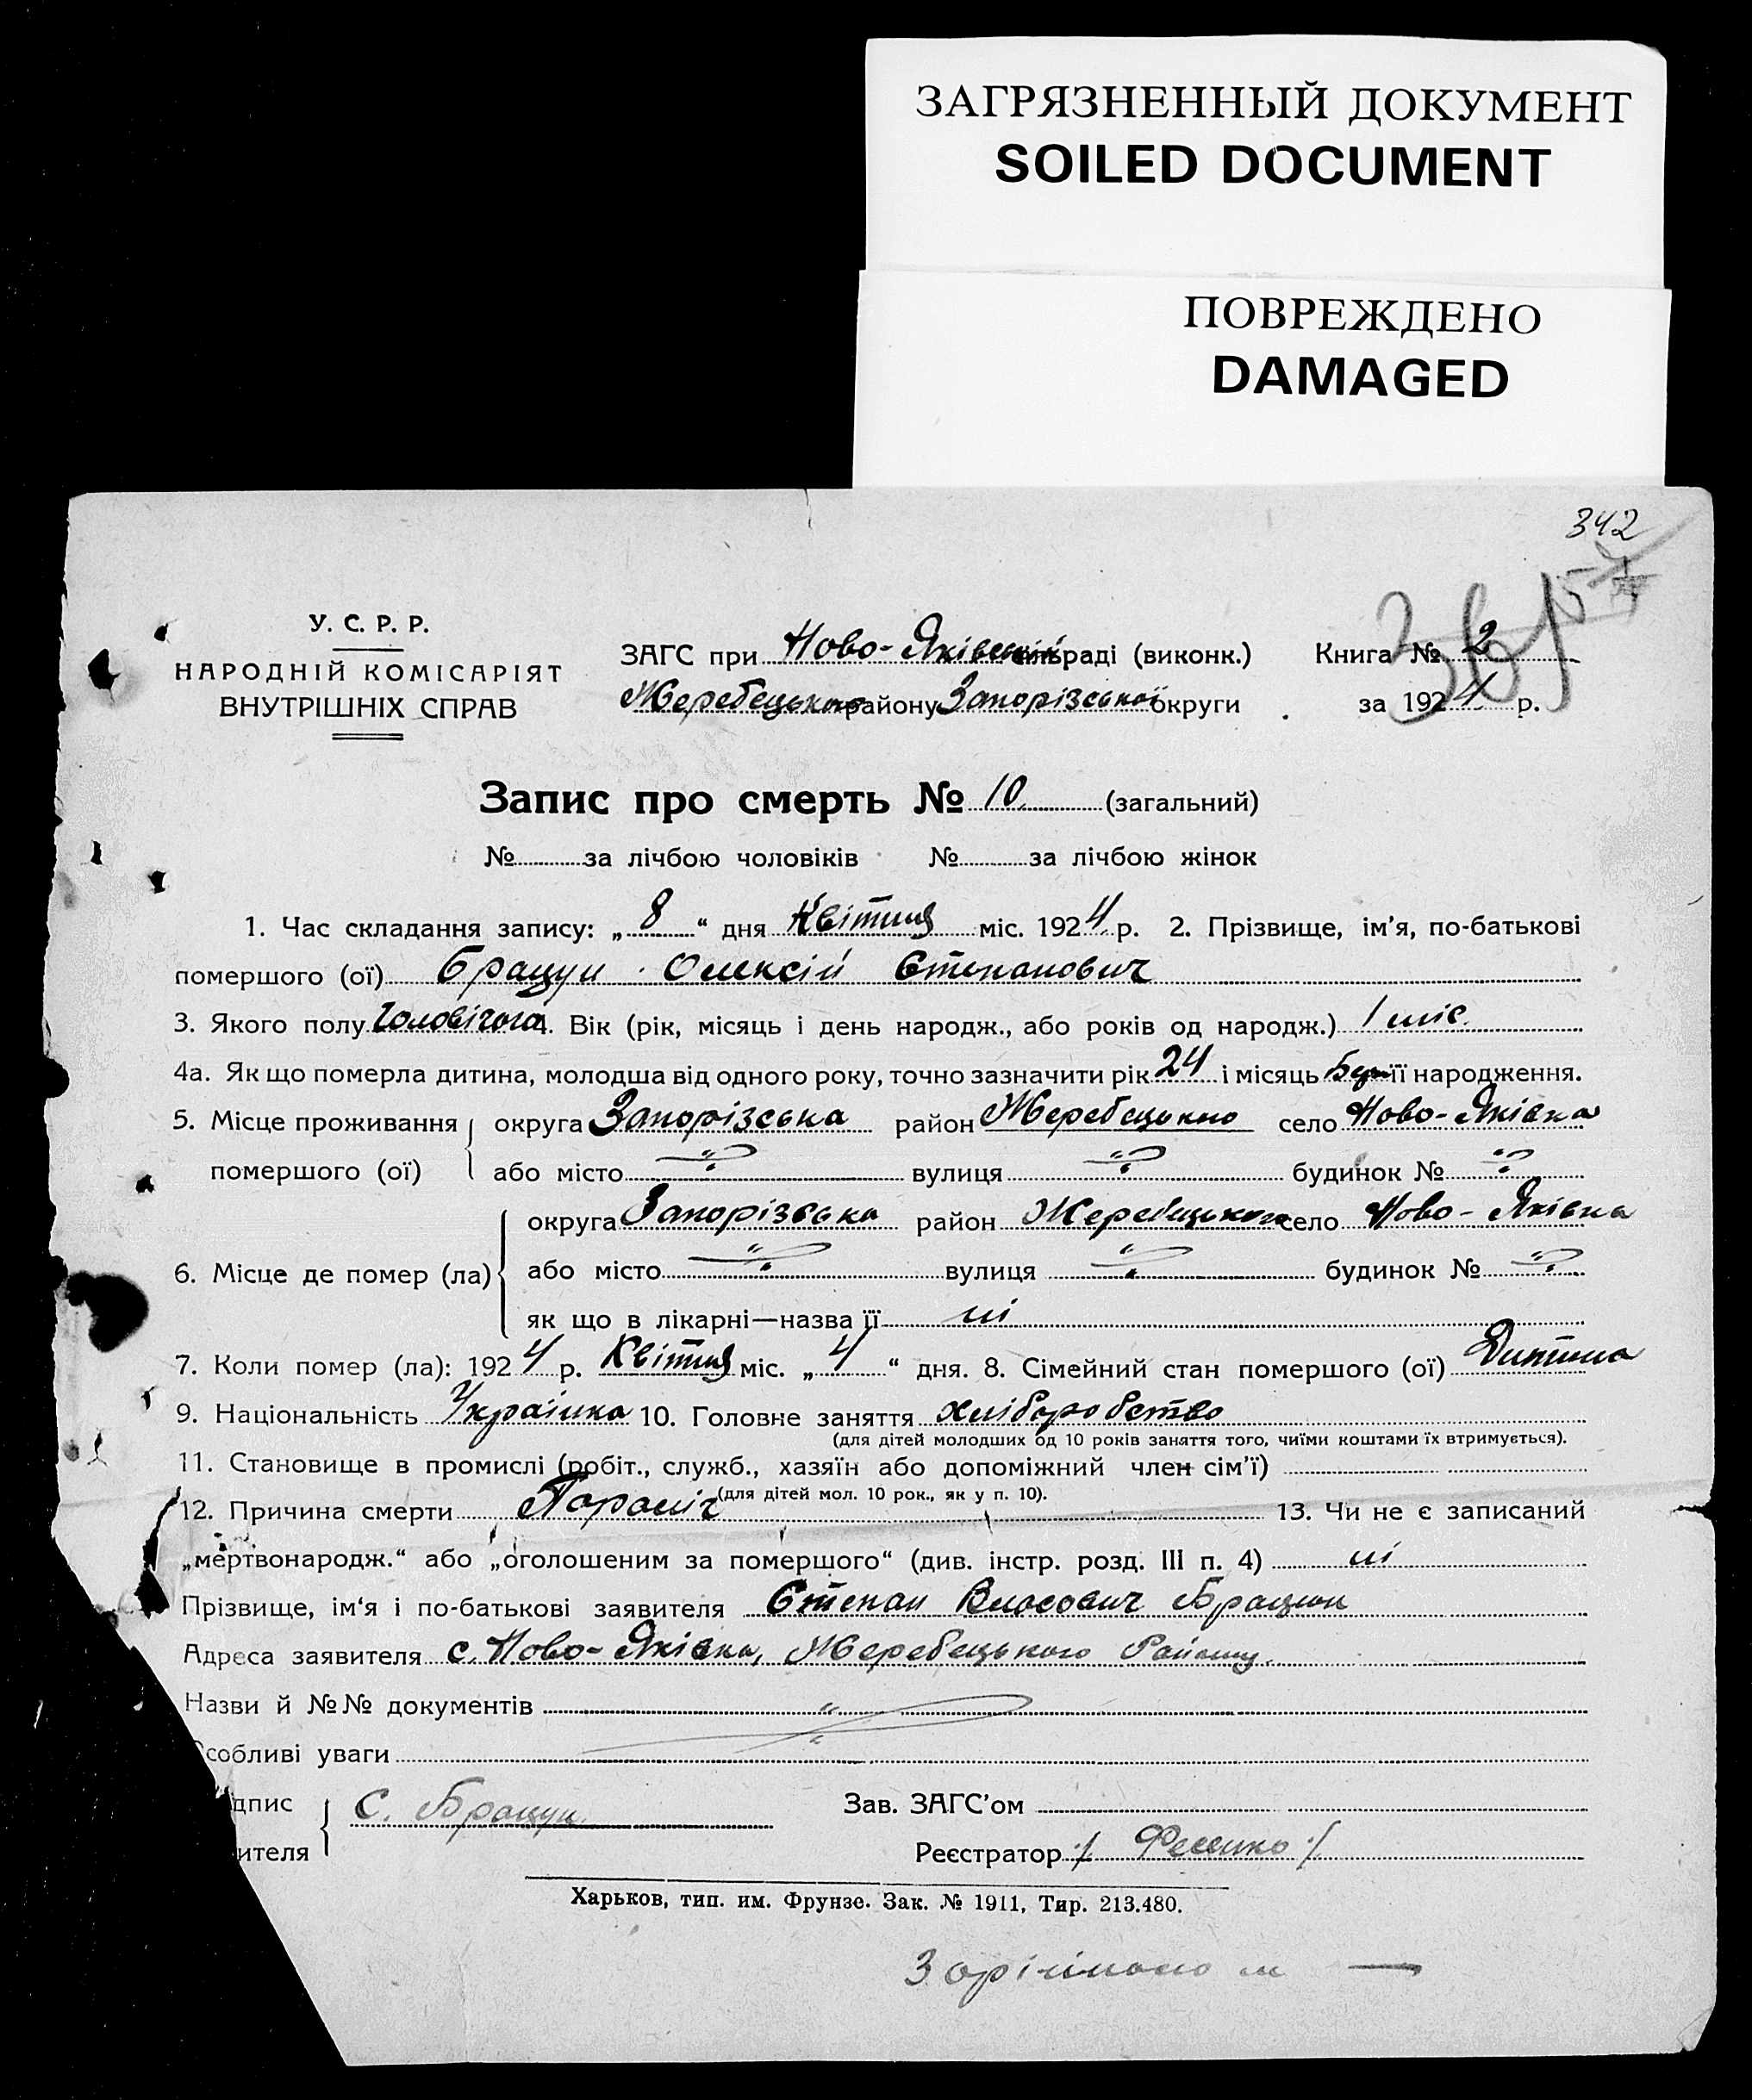 ЗАГРЯЗНЕННЫЙ ДОКУМЕНТ
SOILED DOCUMENT
ПОВРЕЖДЕНО
DAMAGED
342
У. С. Р. Р.
НАРОДНІЙ КОМІСАРІЯТ
ВНУТРІШНІХ СПРАВ
ЗАГС при Ново-Яківській раді (виконк.) Книга № 2
Жеребецького району Запорізської округи за 1924 р.
Запис про смерть № 10 (загальний)
№ за лічбою чоловіків № за лічбою жінок
1. Час складання запису: „8“ дня Квітня міс. 1924 р. 2. Прізвище, ім'я, по-батькові
помершого (ої) Брацун Олексій Степанович
3. Якого полу Чоловічого 4. Вік (рік, місяць і день народж., або років од народж.) 1 міс.
4а. Як що померла дитина, молодша від одного року, точно зазначити рік 24 і місяць її народження.
5. Місце проживання помершого (ої) округа Запорізська район Жеребецького село Ново-Яківка
або місто вулиця будинок №
6. Місце де помер (ла) округа Запорізська район Жеребецького село Ново-Яківка
або місто вулиця будинок №
як що в лікарні—назва її ні
7. Коли помер (ла): 1924 р. Квітня міс. „4“ дня. 8. Сімейний стан помершого (ої) Дитина
9. Національність Українка 10. Головне заняття хліборобство
(для дітей молодших од 10 років заняття того, чиїми коштами їх втримується).
11. Становище в промислі (робіт., служб., хазяїн або допоміжний член сім'ї)
(для дітей мол. 10 рок., як у п. 10).
12. Причина смерти Параліч 13. Чи не є записаний
„мертвонародж.“ або „оголошеним за помершого“ (див. інстр. розд. III п. 4) ні
Прізвище, ім'я і по-батькові заявителя Степан Власович Брацун
Адреса заявителя с. Ново-Яківка, Жеребецького Району.
Назви й №№ документів
собливі уваги
дпис С. Брацун Зав. ЗАГС'ом
ителя Реєстратор /Фесенко/
Харьков, тип. им. Фрунзе. Зак. № 1911, Тир. 213.480.